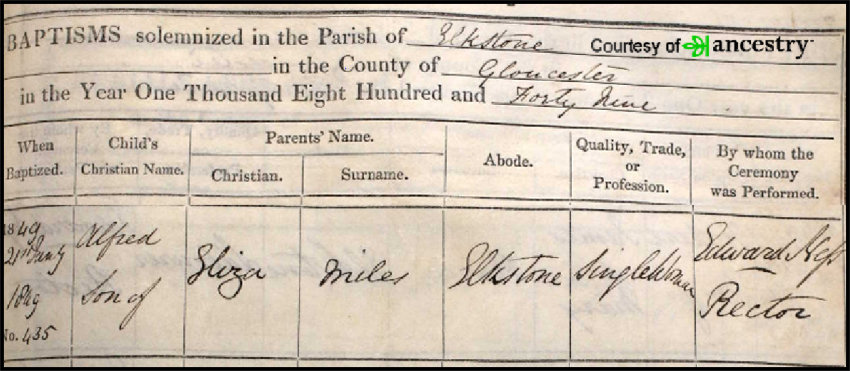 BAPTISMS solemnized in the Parish of Elkstone
Courtesy of ancestry
in the County of Gloucester
in the Year One Thousand Eight Hundred and Forty Nine
When Baptized.
Child's Christian Name.
Parents' Name.
Christian.
Surname.
Abode.
Quality, Trade, or Profession.
By whom the Ceremony was Performed.
1849
21st Jany
1849
No. 435
Alfred
Son of
Eliza
Miles
Elkstone
Single Woman
Edward
Rector